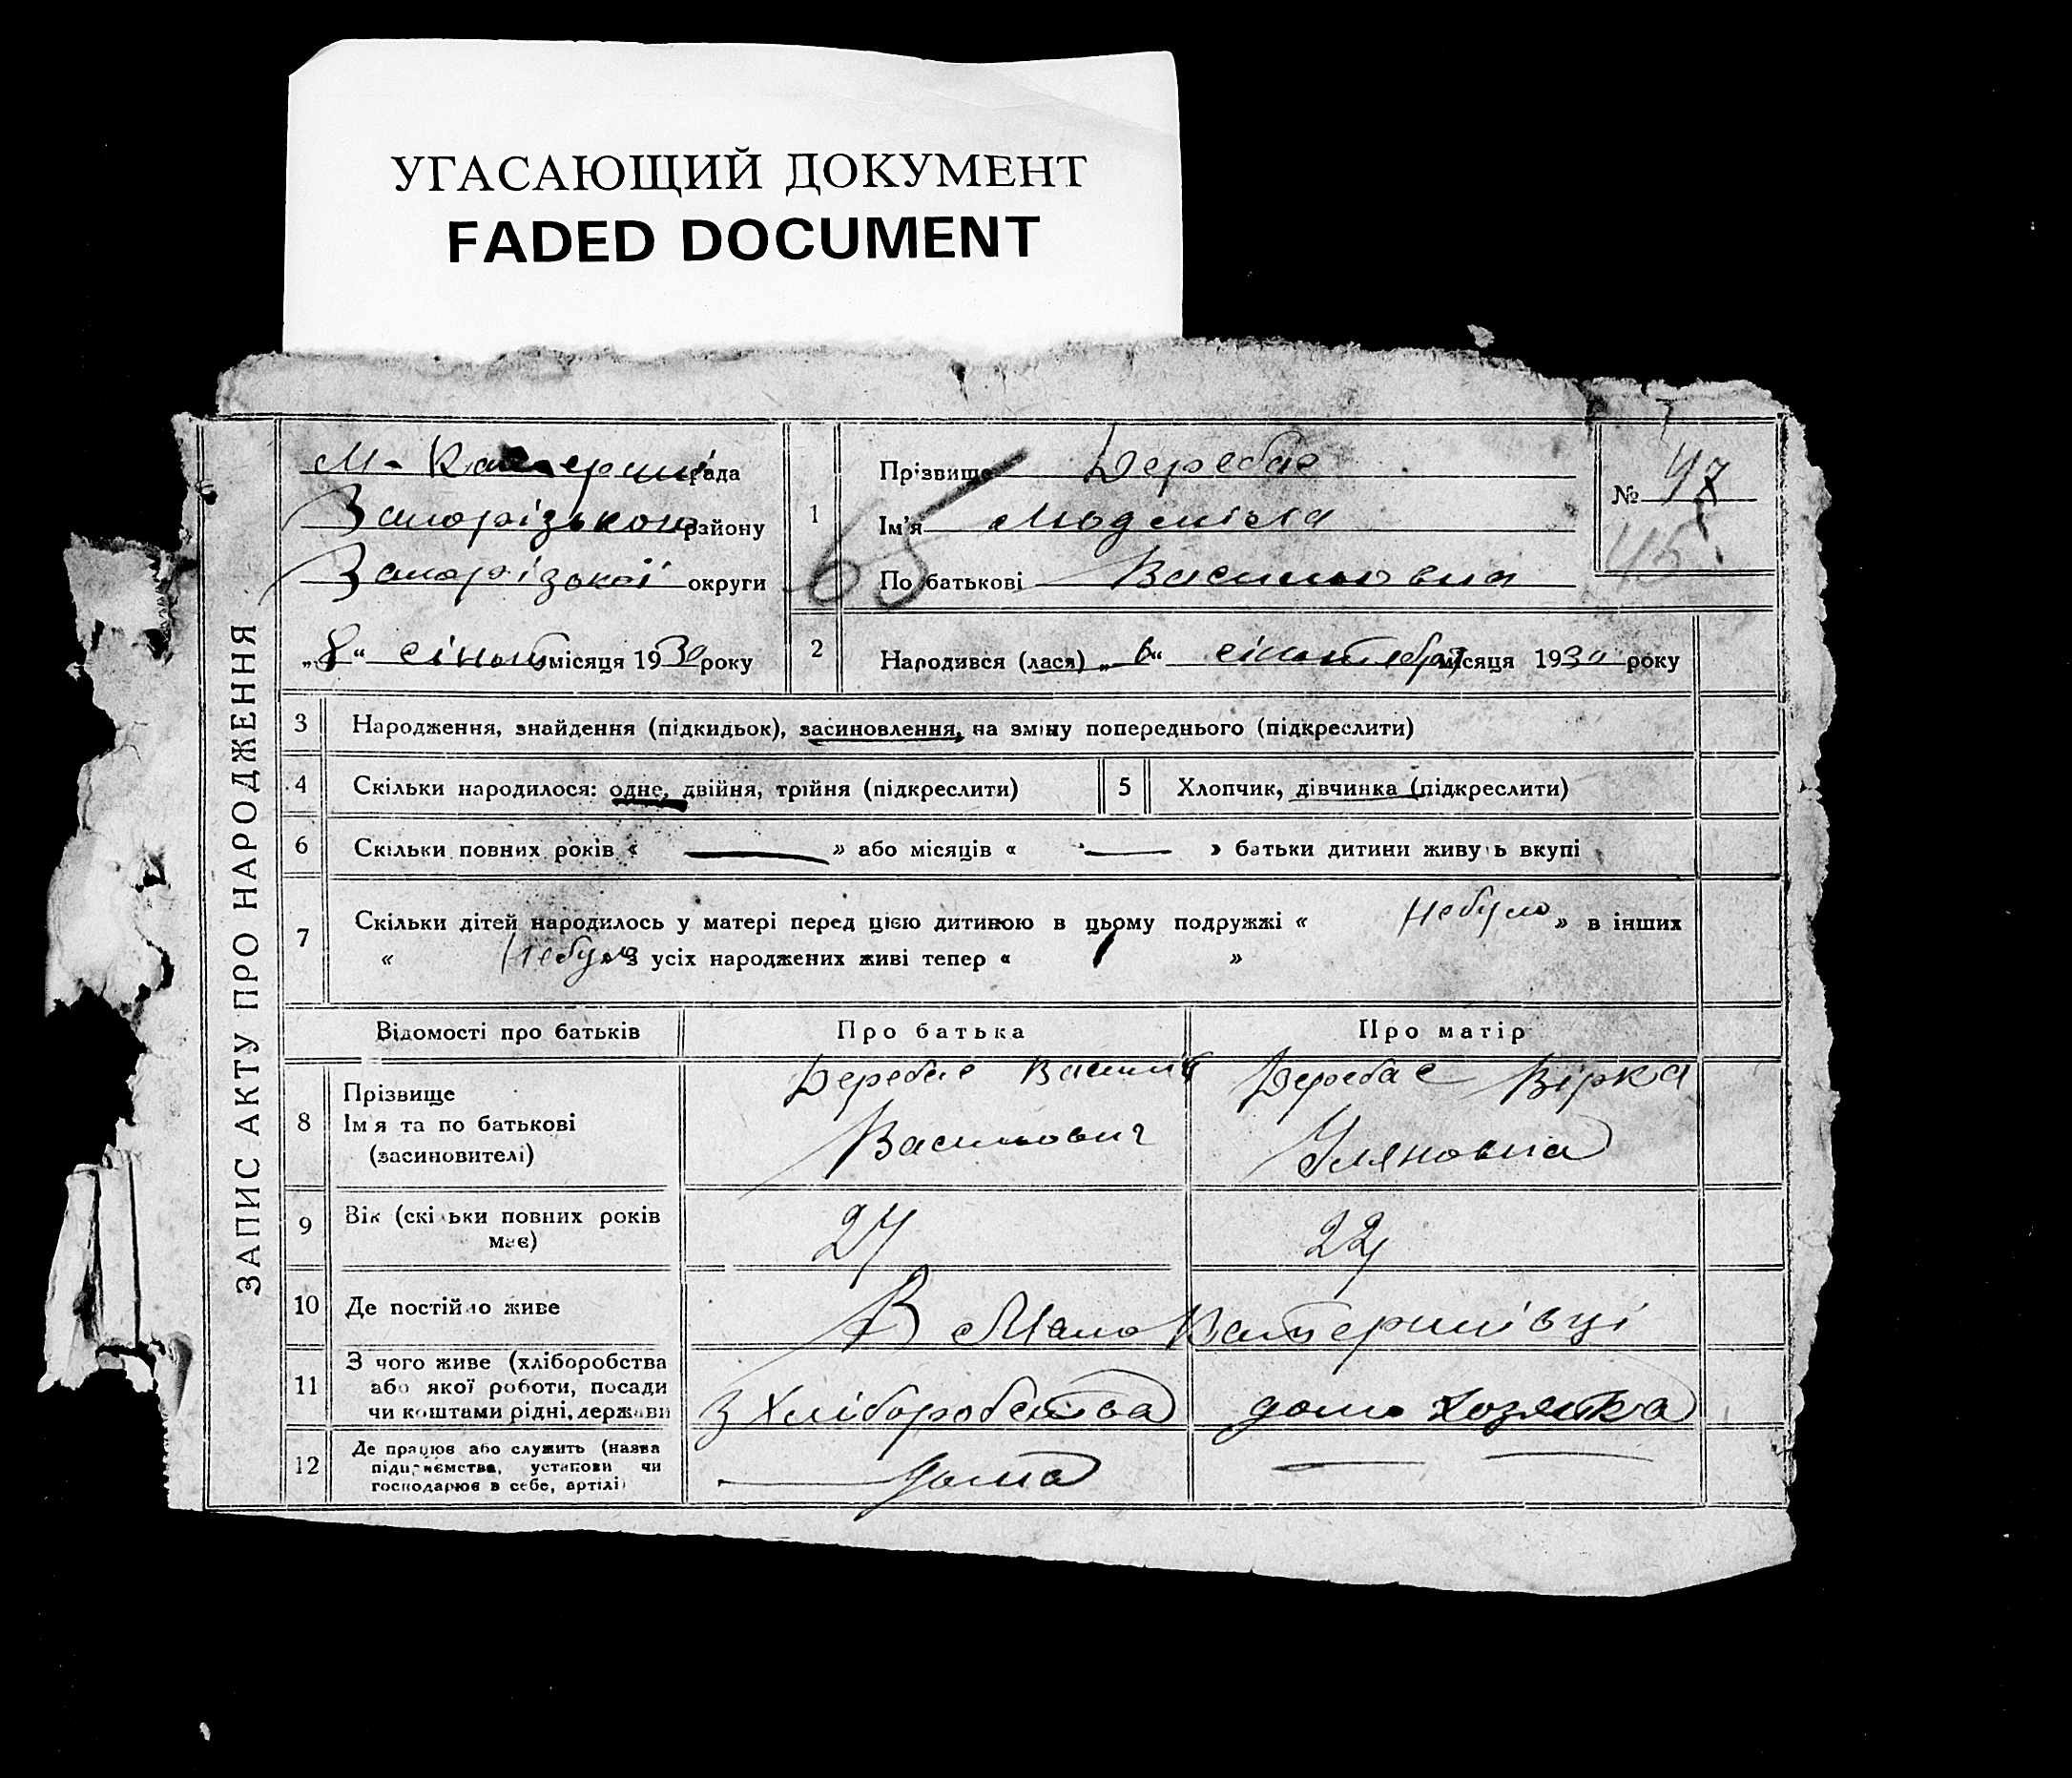 УГАСАЮЩИЙ ДОКУМЕНТ
FADED DOCUMENT
ЗАПИС АКТУ ПРО НАРОДЖЕННЯ
М- рада
Запорізького району
Запорізької округи
„8“ місяця 1930 року
1
Прізвище Деребас
Ім'я Людміла
По батькові Васильовна
№ 47
45
65
2
Народився (лася) „6“ місяця 1930 року
3 Народження, знайдення (підкидьок), засиновлення, на зміну попереднього (підкреслити)
4 Скільки народилося: одне, двійня, трійня (підкреслити)
5 Хлопчик, дівчинка (підкреслити)
6 Скільки повних років « — » або місяців « — » батьки дитини живуть вкупі
7 Скільки дітей народилось у матері перед цією дитиною в цьому подружжі « небуло » в інших
« небуло » З усіх народжених живі тепер « 1 »
Відомості про батьків Про батька Про матір
8 Прізвище
Ім'я та по батькові
(засиновителі)
Деребас Василь
Васильович
Деребас Вірка
Уляновна
9 Вік (скільки повних років
має)
24 22
10 Де постійно живе В Мало Катеринівці
11 З чого живе (хліборобства
або якої роботи, посади
чи коштами рідні, держави
З Хліборобства домо хозяйка
12 Де працює або служить (назва
підприємства, установи чи
господарює в себе, артілі)
— дома — —